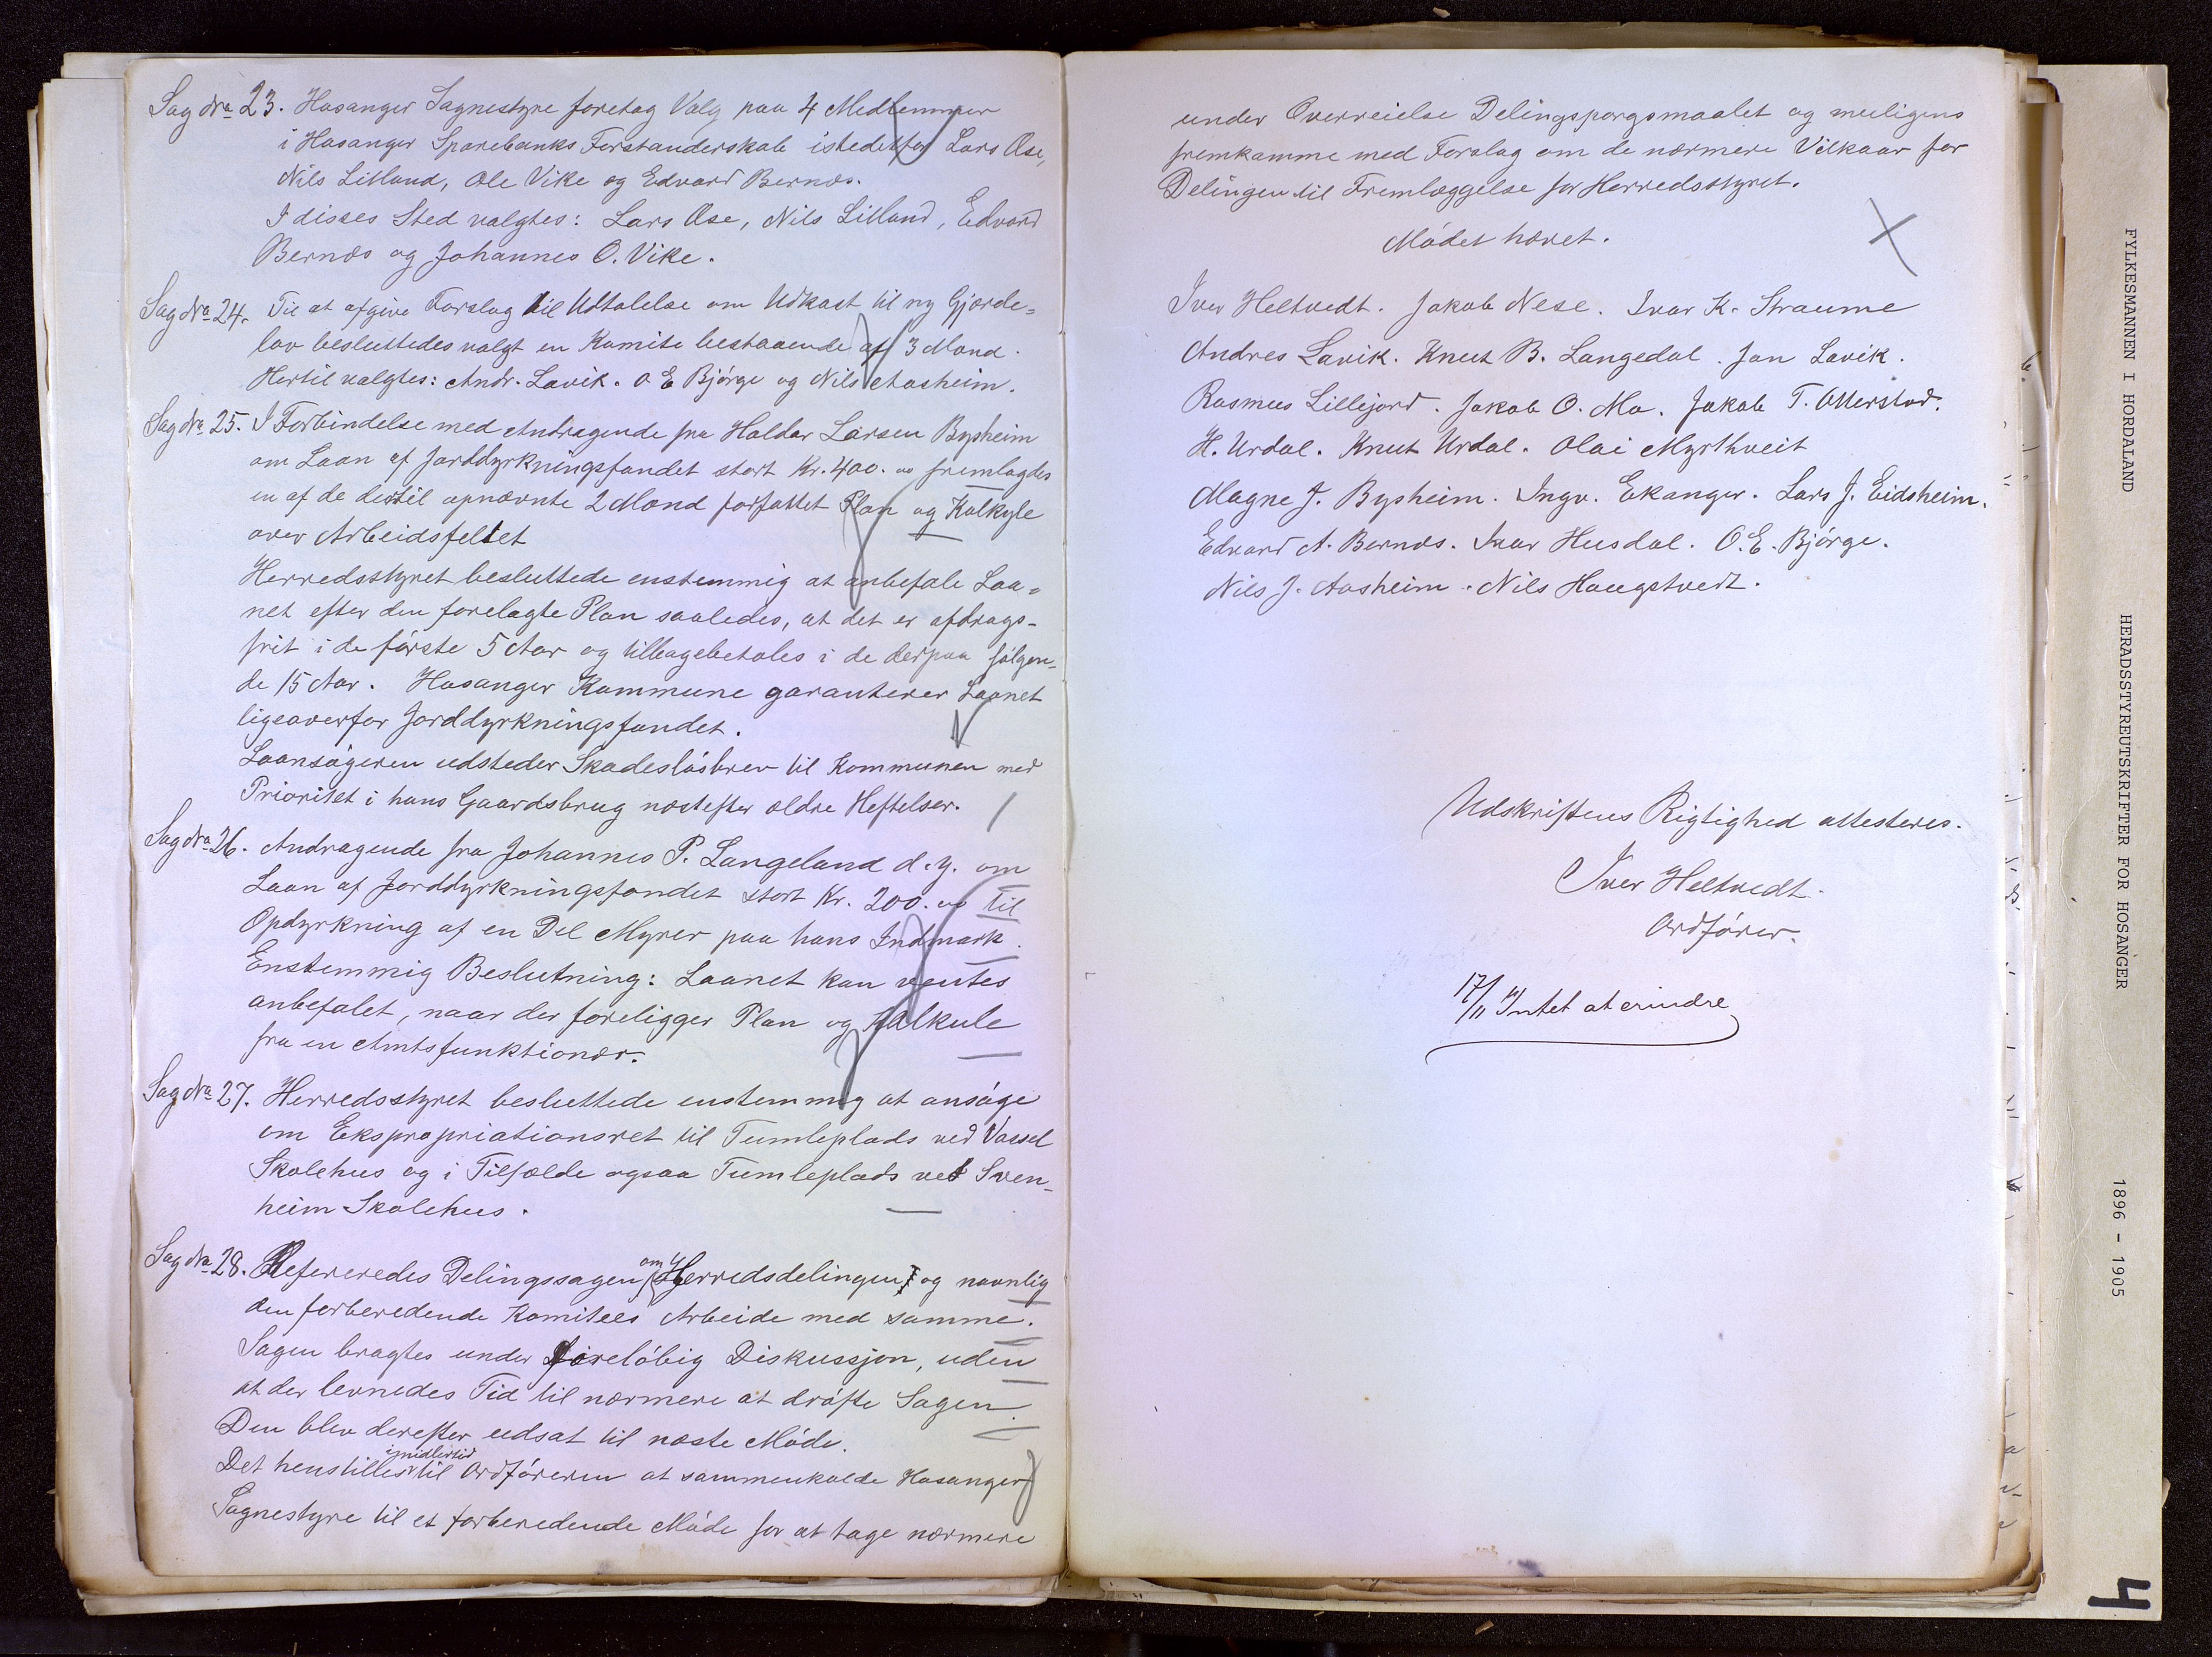 Sag No 23. Hosanger Sognestyre foretog Valg paa 4 Medlemmer
i Hosanger Sparebanks Forstanderskab istedetfor Lars Øse,
Nils Litland, Ole Vike og Edvard Bernæs.
I disses Sted valgtes: Lars Øse, Nils Litland, Edvard
Bernæs og Johannes O. Vike.
Sag No 24. Til at afgive Forslag til Udtalelse om Udkast til ny Gjærde-
lov besluttedes valgt en Komite bestaaende af 3 Mand.
Hertil valgtes: Andr. Lavik. O E Bjørge og Nils Aasheim.
Sag No 25. I Forbindelse med Andragende fra Haldor Larsen Bysheim
om Laan af Jorddyrkningsfondet stort Kr. 400. 00 fremlagdes
en af de dertil opnævnte 2 Mænd forfattet Plan og Kalkyle
over Arbeidsfeltet
Herredsstyret besluttede enstemmig at anbefale Laa-
net efter den forelagte Plan saaledes, at det er afdrags-
frit i de første 5 Aar og tilbagebetales i de derpaa følgen-
de 15 Aar. Hosanger Kommune garanterer Laanet
ligeoverfor Jorddyrkningsfondet.
Laansøgeren udsteder Skadesløsbrev til Kommunen med
Prioritet i hans Gaardsbrug næstefter ældre Heftelser.
Sag No 26. Andragende fra Johannes P. Langeland d.y. om
Laan af Jorddyrkningsfondet stort Kr. 200. 00 til
Opdyrkning af en Del Myrer paa hans Indmark.
Enstemmig Beslutning: Laanet kan ventes
anbefalet, naar der foreligger Plan og Kalkule
fra en Amtsfunktionær.
Sag No 27. Herredsstyret besluttede enstemmig at ansøge
om Ekspropriationsret til Tumleplads ved Vassel
Skolehus og i Tilfælde ogsaa Tumleplads ved Sven-
heim Skolehus.
Sag No 28. Refereredes Delingssagen om Herredsdelingen og navnlig
den forberedende Komitees Arbeide med samme.
Sagen bragtes under foreløbig Diskussjon, uden
at der levnedes Tid til nærmere at drøfte Sagen.
Den blev derefter udsat til næste Møde.
Det henstilles imidlertid til Ordføreren at sammenkalde Hosanger
Sognestyre til et forberedende Møde for at tage nærmere
under Overveielse Delingsporgsmaalet og muligens
fremkomme med Forslag om de nærmere Vilkaar for
Delingen til Fremlæggelse for Herredsstyret.
Mødet hævet.
Iver Heltvedt. Jakob Nese. Ivar K. Straume
Andres Lavik. Knut B. Langedal. Jon Lavik.
Rasmus Lillejord. Jakob O. Mo. Jakob T. Otterstad.
H. Urdal. Knut Urdal. Olai Myrthveit
Magne J. Bysheim. Ingv. Ekanger. Lars J. Eidsheim.
Edvard A. Bernæs. Ivar Husdal. O. E. Bjørge.
Nils J. Aasheim. Nils Haugstvedt.
Udskriftens Rigtighed attesteres.
Iver Heltvedt.
Ordfører.
17/11 Intet at erindre
FYLKESMANNEN I HORDALAND HERADSSTYREUTSKRIFTER FOR HOSANGER 1896 - 1905
4